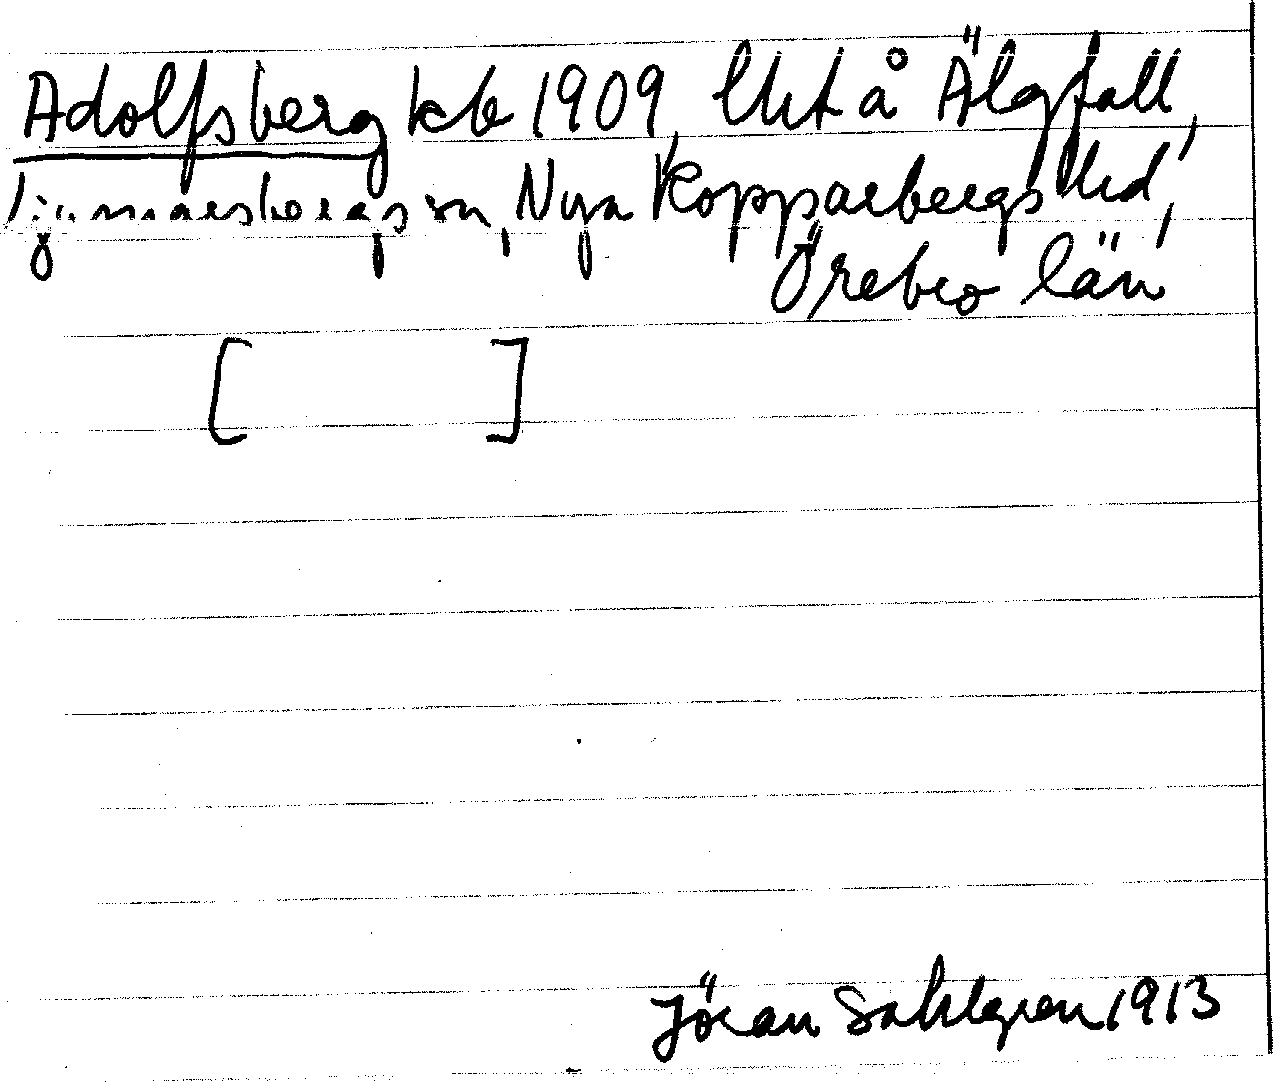 Adolfsberg kb 1909, lht å Älgfall,
Ljusnarsbergs sn, Nya Kopparbergs hd,
Örebro län
[ ]
Jöran Sahlgren 1913